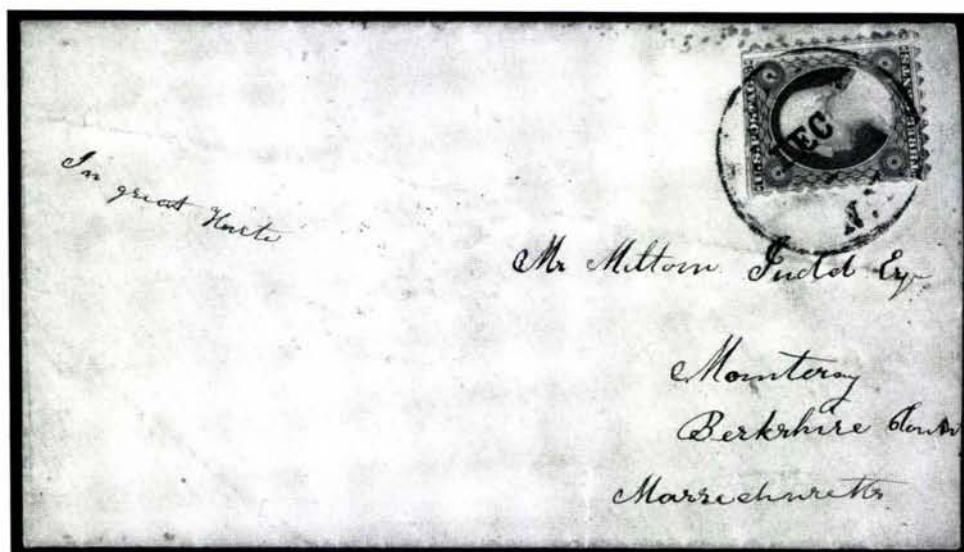 DEC
N.
In great Haste
Mr Milton Judd Esq
Monterey
Berkshire County
Massachusetts